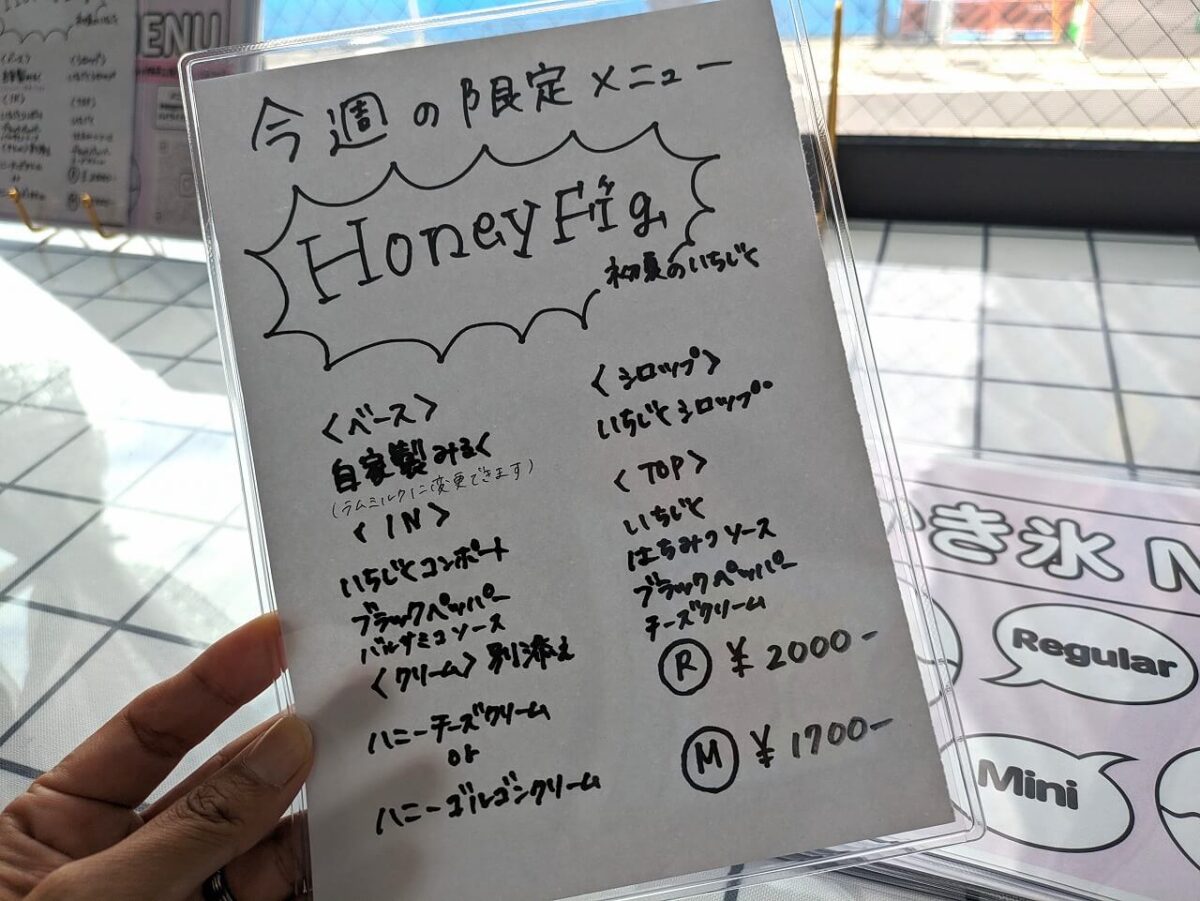 今週の限定メニュー
Honey Fig
初夏のいちじく
<ベース>
自家製みるく
(ラムミルクに変更できます)
<IN>
いちじくコンポート
ブラックペッパー
バルサミコソース
<クリーム>別添え
ハニーチーズクリーム
or
ハニーゴルゴンクリーム
<シロップ>
いちじくシロップ
<TOP>
いちじく
はちみつソース
ブラックペッパー
チーズクリーム
Ⓡ ¥2000-
Ⓜ ¥1700-
ENU
き氷 M
Regular
Mini